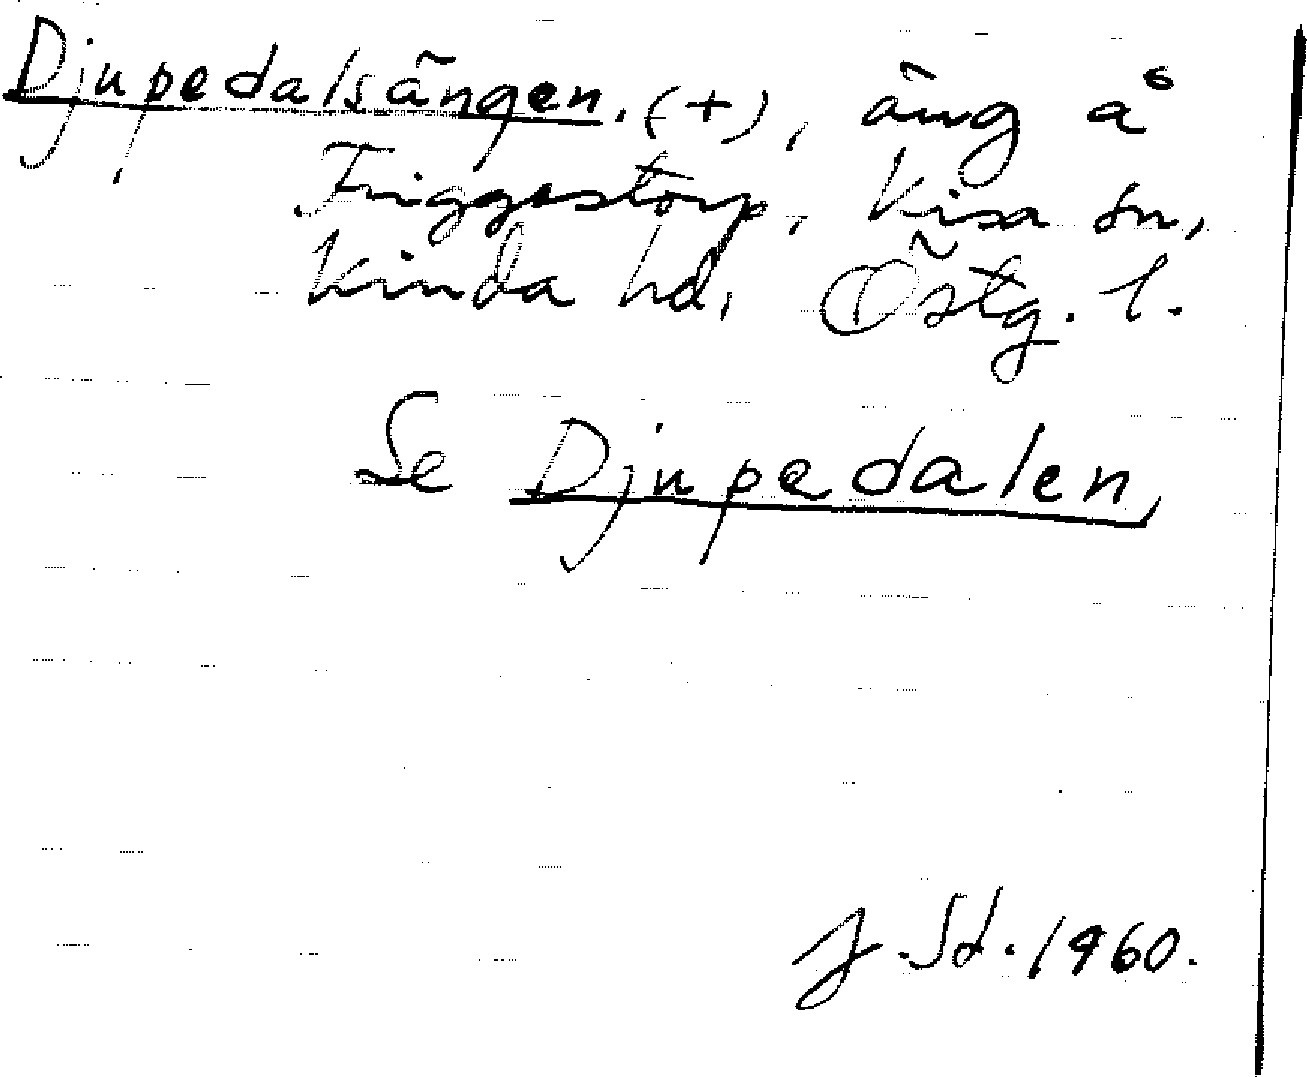 Djupedalsängen. (+), äng å
Friggestorp, Kisa sn,
Kinda hd, Östg. l.
Se Djupedalen,
J. Sd. 1960.